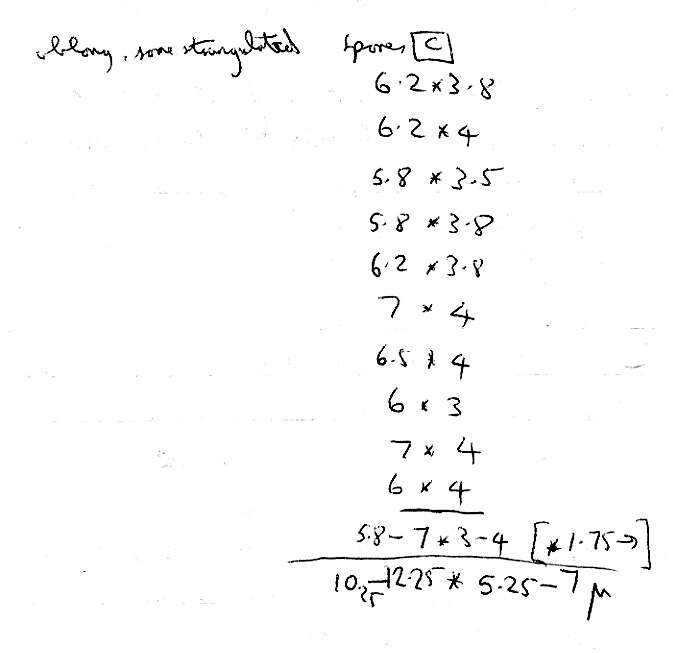 oblong, some strangulated spores [C]
6.2 * 3.8
6.2 * 4
5.8 * 3.5
5.8 * 3.8
6.2 * 3.8
7 * 4
6.5 * 4
6 * 3
7 * 4
6 * 4
5.8 - 7 * 3 - 4 [* 1.75 →]
10.25 - 12.25 * 5.25 - 7 μ